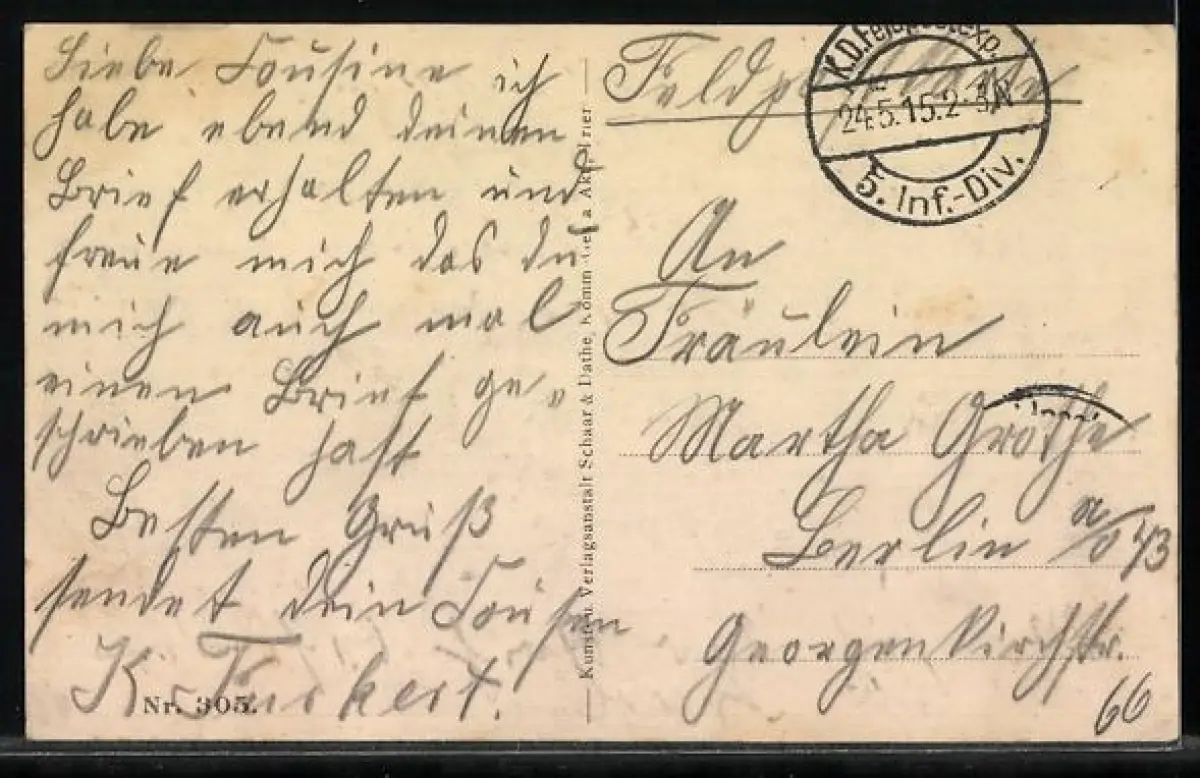 Liebe Cousine ich
habe ebend deinen
Brief erhalten und
freue mich das du
mich auch mal
einen Brief ge-
schrieben hast
Besten Gruß
sendet dein Cousen
K.
Nr. 305.
Kunst- u. Verlagsanstalt Schaar & Dathe, Komm.-Ges. a. Akt., Trier
Feldpostkarte
K.D. Feldpostexp.
24.5.15. 2-3 N
5. Inf.-Div.
An
Fräulein
Martha Grothe
Berlin
Georgenkirchstr.
66